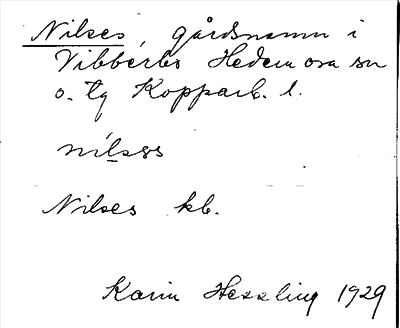 Nilses, gårdsnamn i
Vibberbo Hedemora sn
o. tg Kopparb. l.
nilsəs
Nilses kb.
Karin Hessling 1929